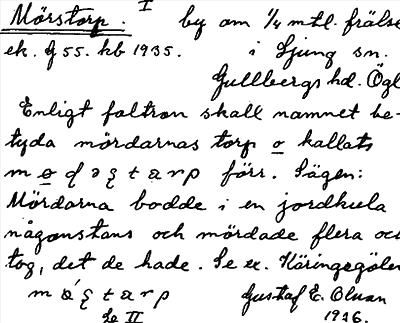 Mörstorp. I by om 1/4 mtl. frälse
ek. G 55. kb 1935. i Ljung sn.
Gullbergs hd. Ögl
Enligt foltron skall namnet be-
tyda mördarnas torp o kallats
förr. Sägen:
Mördarna bodde i en jordkula
någonstans och mördade flera oc
tog, det de hade. Se ex. Häringegölen
Gustaf E. Olsson
Se II 1926.